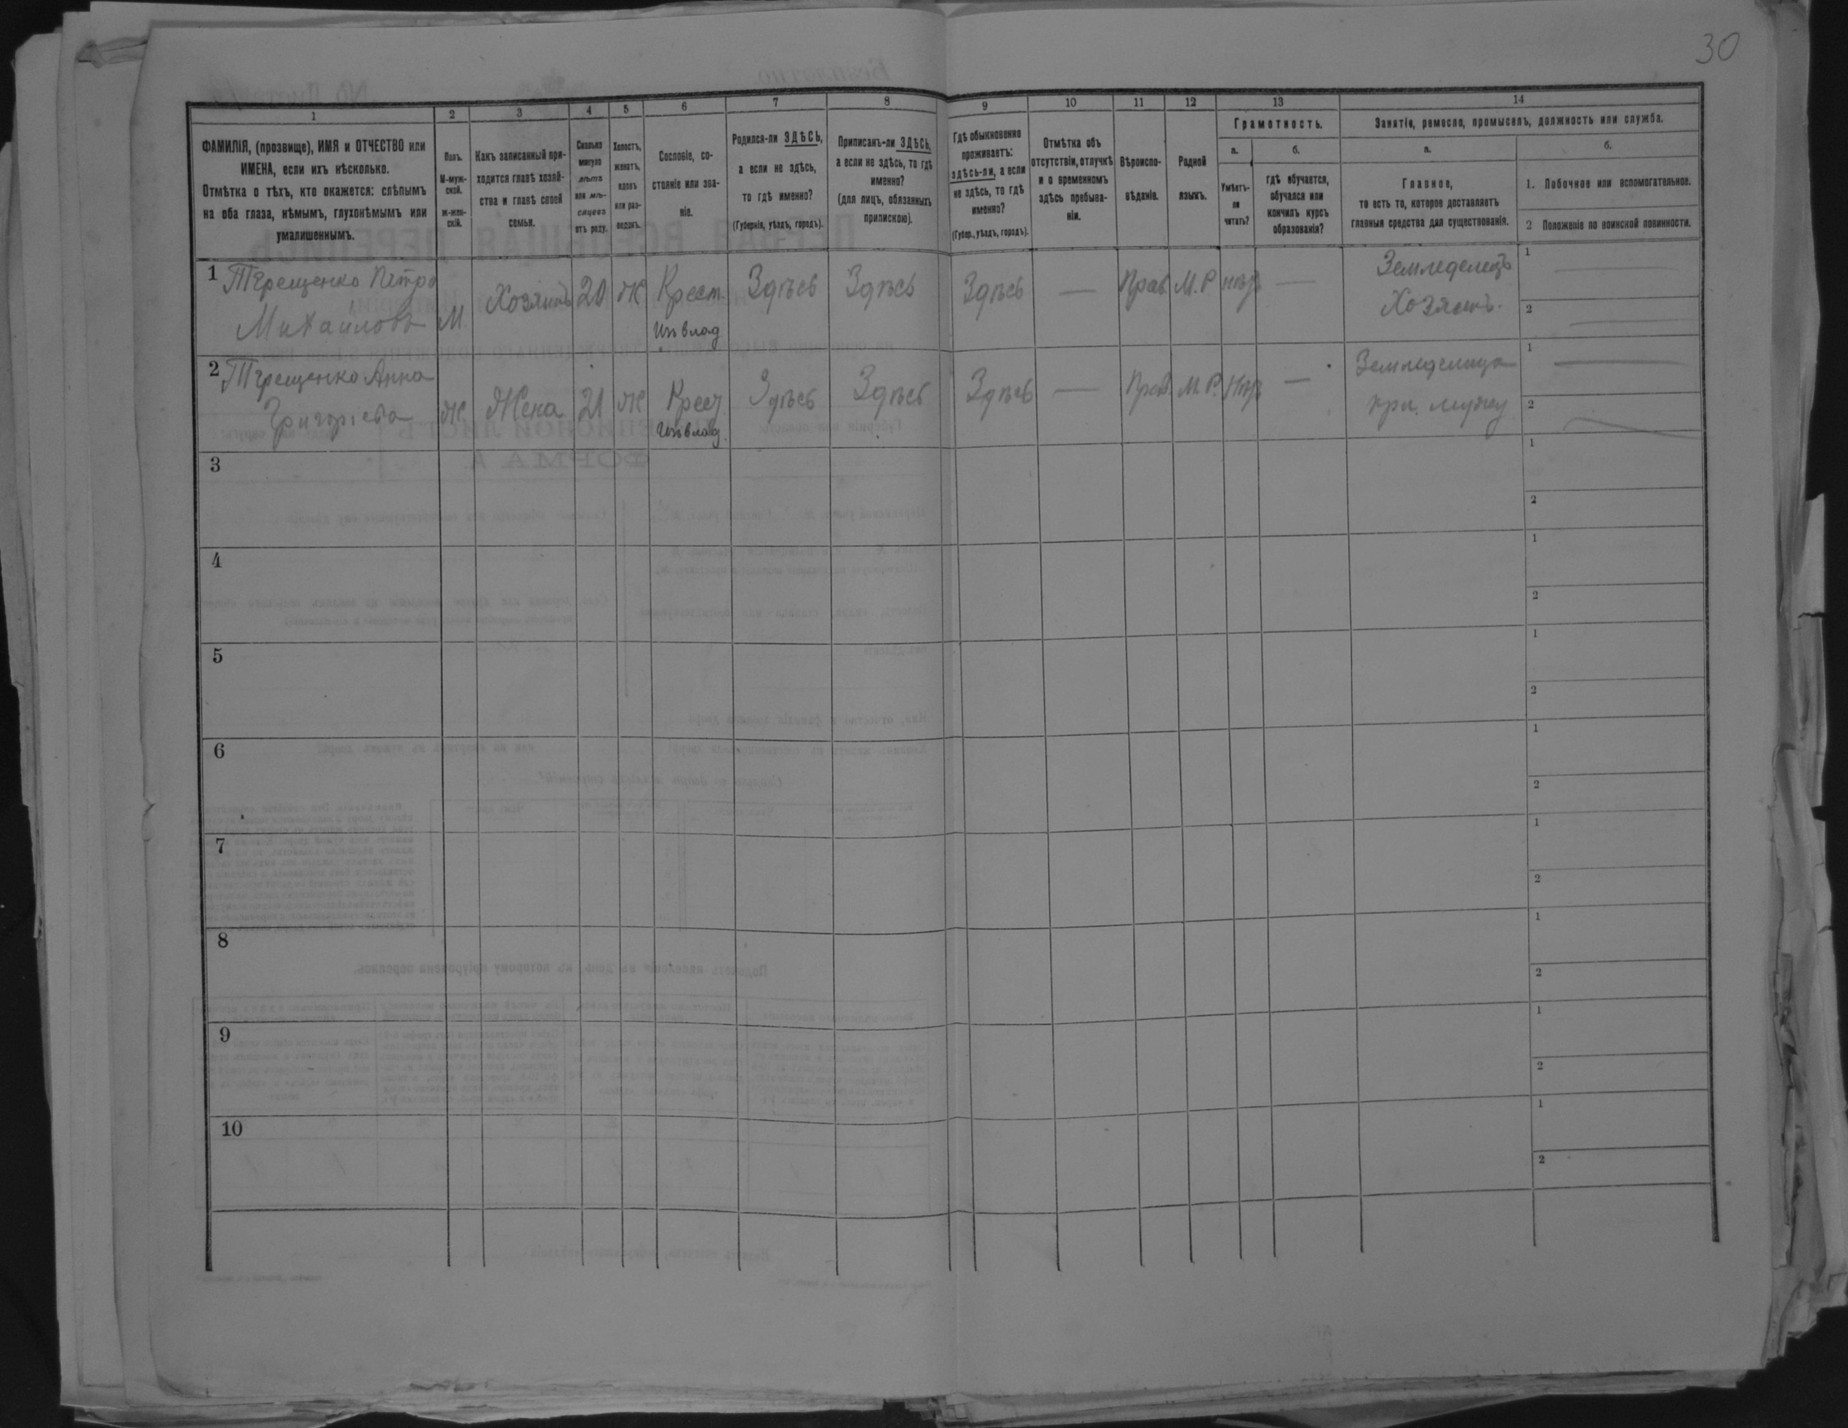 30
1 2 3 4 5 6 7 8 9 10 11 12 13 14
ФАМИЛІЯ, (прозвище), ИМЯ и ОТЧЕСТВО или
ИМЕНА, если ихъ нѣсколько.
Отмѣтка о тѣхъ, кто окажется: слѣпымъ
на оба глаза, нѣмымъ, глухонѣмымъ или
умалишеннымъ.
Полъ.
М-муж-
ской.
ж-жен-
скій.
Какъ записанный при-
ходится главѣ хозяй-
ства и главѣ своей
семьи.
Сколько
минуло
лѣтъ
или мѣ-
сяцевъ
отъ роду.
Холостъ,
женатъ,
вдовъ
или раз-
веденъ.
Сословіе, со-
стояніе или зва-
ніе.
Родился-ли ЗДѢСЬ,
а если не здѣсь,
то гдѣ именно?
(Губернія, уѣздъ, городъ).
Приписанъ-ли ЗДѢСЬ,
а если не здѣсь, то гдѣ
именно?
(для лицъ, обязанныхъ
припискою).
Гдѣ обыкновенно
проживаетъ:
здѣсь-ли, а если
не здѣсь, то гдѣ
именно?
(Губер., уѣздъ, городъ).
Отмѣтка объ
отсутствіи, отлучкѣ
и о временномъ
здѣсь пребыва-
ніи.
Вѣроиспо-
вѣданіе.
Родной
языкъ.
Грамотность.
а.
Умѣетъ-
ли
читать?
б.
гдѣ обучается,
обучался или
кончилъ курсъ
образованія?
Занятіе, ремесло, промыселъ, должность или служба.
а.
Главное,
то есть то, которое доставляетъ
главныя средства для существованія.
б.
1. Побочное или вспомогательное.
2 Положеніе по воинской повинности.
1 Терещенко Петро
Михаиловъ М Хозяинъ 20 Ж Крест. Здѣсь Здѣсь Здѣсь — Прав М.Р нѣтъ — Земледелецъ 1
из влад Хозяинъ. 2
2 Терещенко Анна
Григоріева Ж. Жена 21 Ж Крест Здѣсь Здѣсь Здѣсь — Прав. М.Р. Нѣтъ — Земледелица 1
из влад при мужу 2
3 1
2
4 1
2
5 1
2
6 1
2
7 1
2
8 1
2
9 1
2
10 1
2